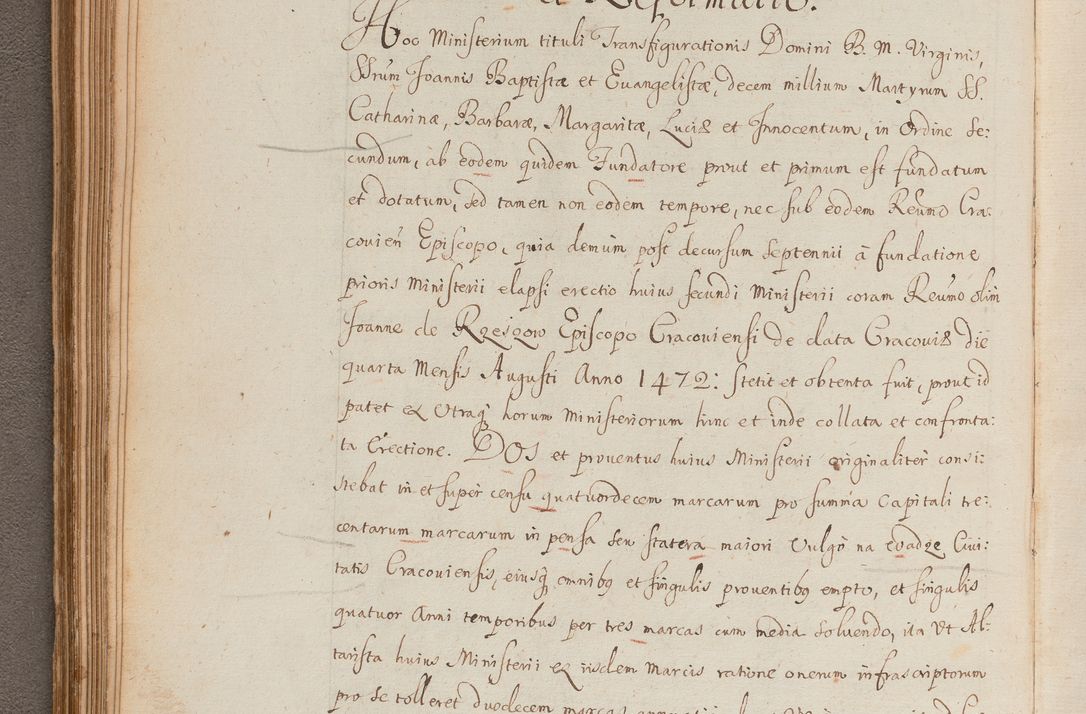 et Reformatio.
Hoc Ministerium tituli Transfigurationis Domini B. M. Virginis,
SSrum Joannis Baptistæ et Euangelistæ, decem millium Martyrum SS.
Catharinæ, Barbaræ, Margaritæ, Luciæ et Innocentum, in Ordine Se:
cundum, ab eodem quidem Fundatore prout et primum est fundatum
et dotatum, sed tamen non eodem tempore, nec sub eodem Reũmo Cra:
couień Episcopo, quia demum post decursum Septennii à fundatione
prioris Ministerii elapsi erectio huius secundi Ministerii coram Reũmo olim
Joanne de Rzeszow Episcopo Cracouiensi de data Cracouiæ die
quarta Mensis Augusti Anno 1472: stetit et obtenta fuit, prout id
patet ex Utraq horum Ministeriorum hinc et inde collata et confronta:
ta Erectione. DOS et prouentus huius Ministerii originaliter consi:
stebat in et super censu quatuordecem marcarum pro summa Capitali tre:
centarum marcarum in pensa seu statera maiori Vulgo na Ciui:
tatis Cracouiensis, eiusq omnibg et singulis prouentibg empto, et singulis
quatuor Anni temporibus per tres marcas cum media soluendo, ita Vt Al:
tarista huius Ministerii ex iisdem Marcis ratione onerum infrascriptorum
pro se tolleret duodecem marcas